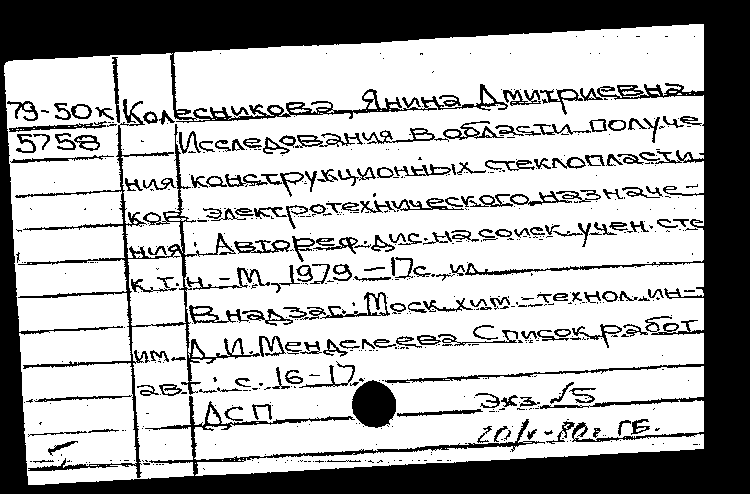 79-50к Колесникова, Янина Дмитриевна
5758 Исследования в области получе
ния конструкционных стеклопласти-
ков электротехнического назначе-
ния: Автореф. дис. на соиск. учен. сте
к.т.н. - М., 1979. - 17с., ил.
В надзаг.: Моск. хим.-технол. ин-т
им. Д.И. Менделеева Список работ
авт.: с. 16-17.
ДСП Экз. №5
20/V-80г ГБ.